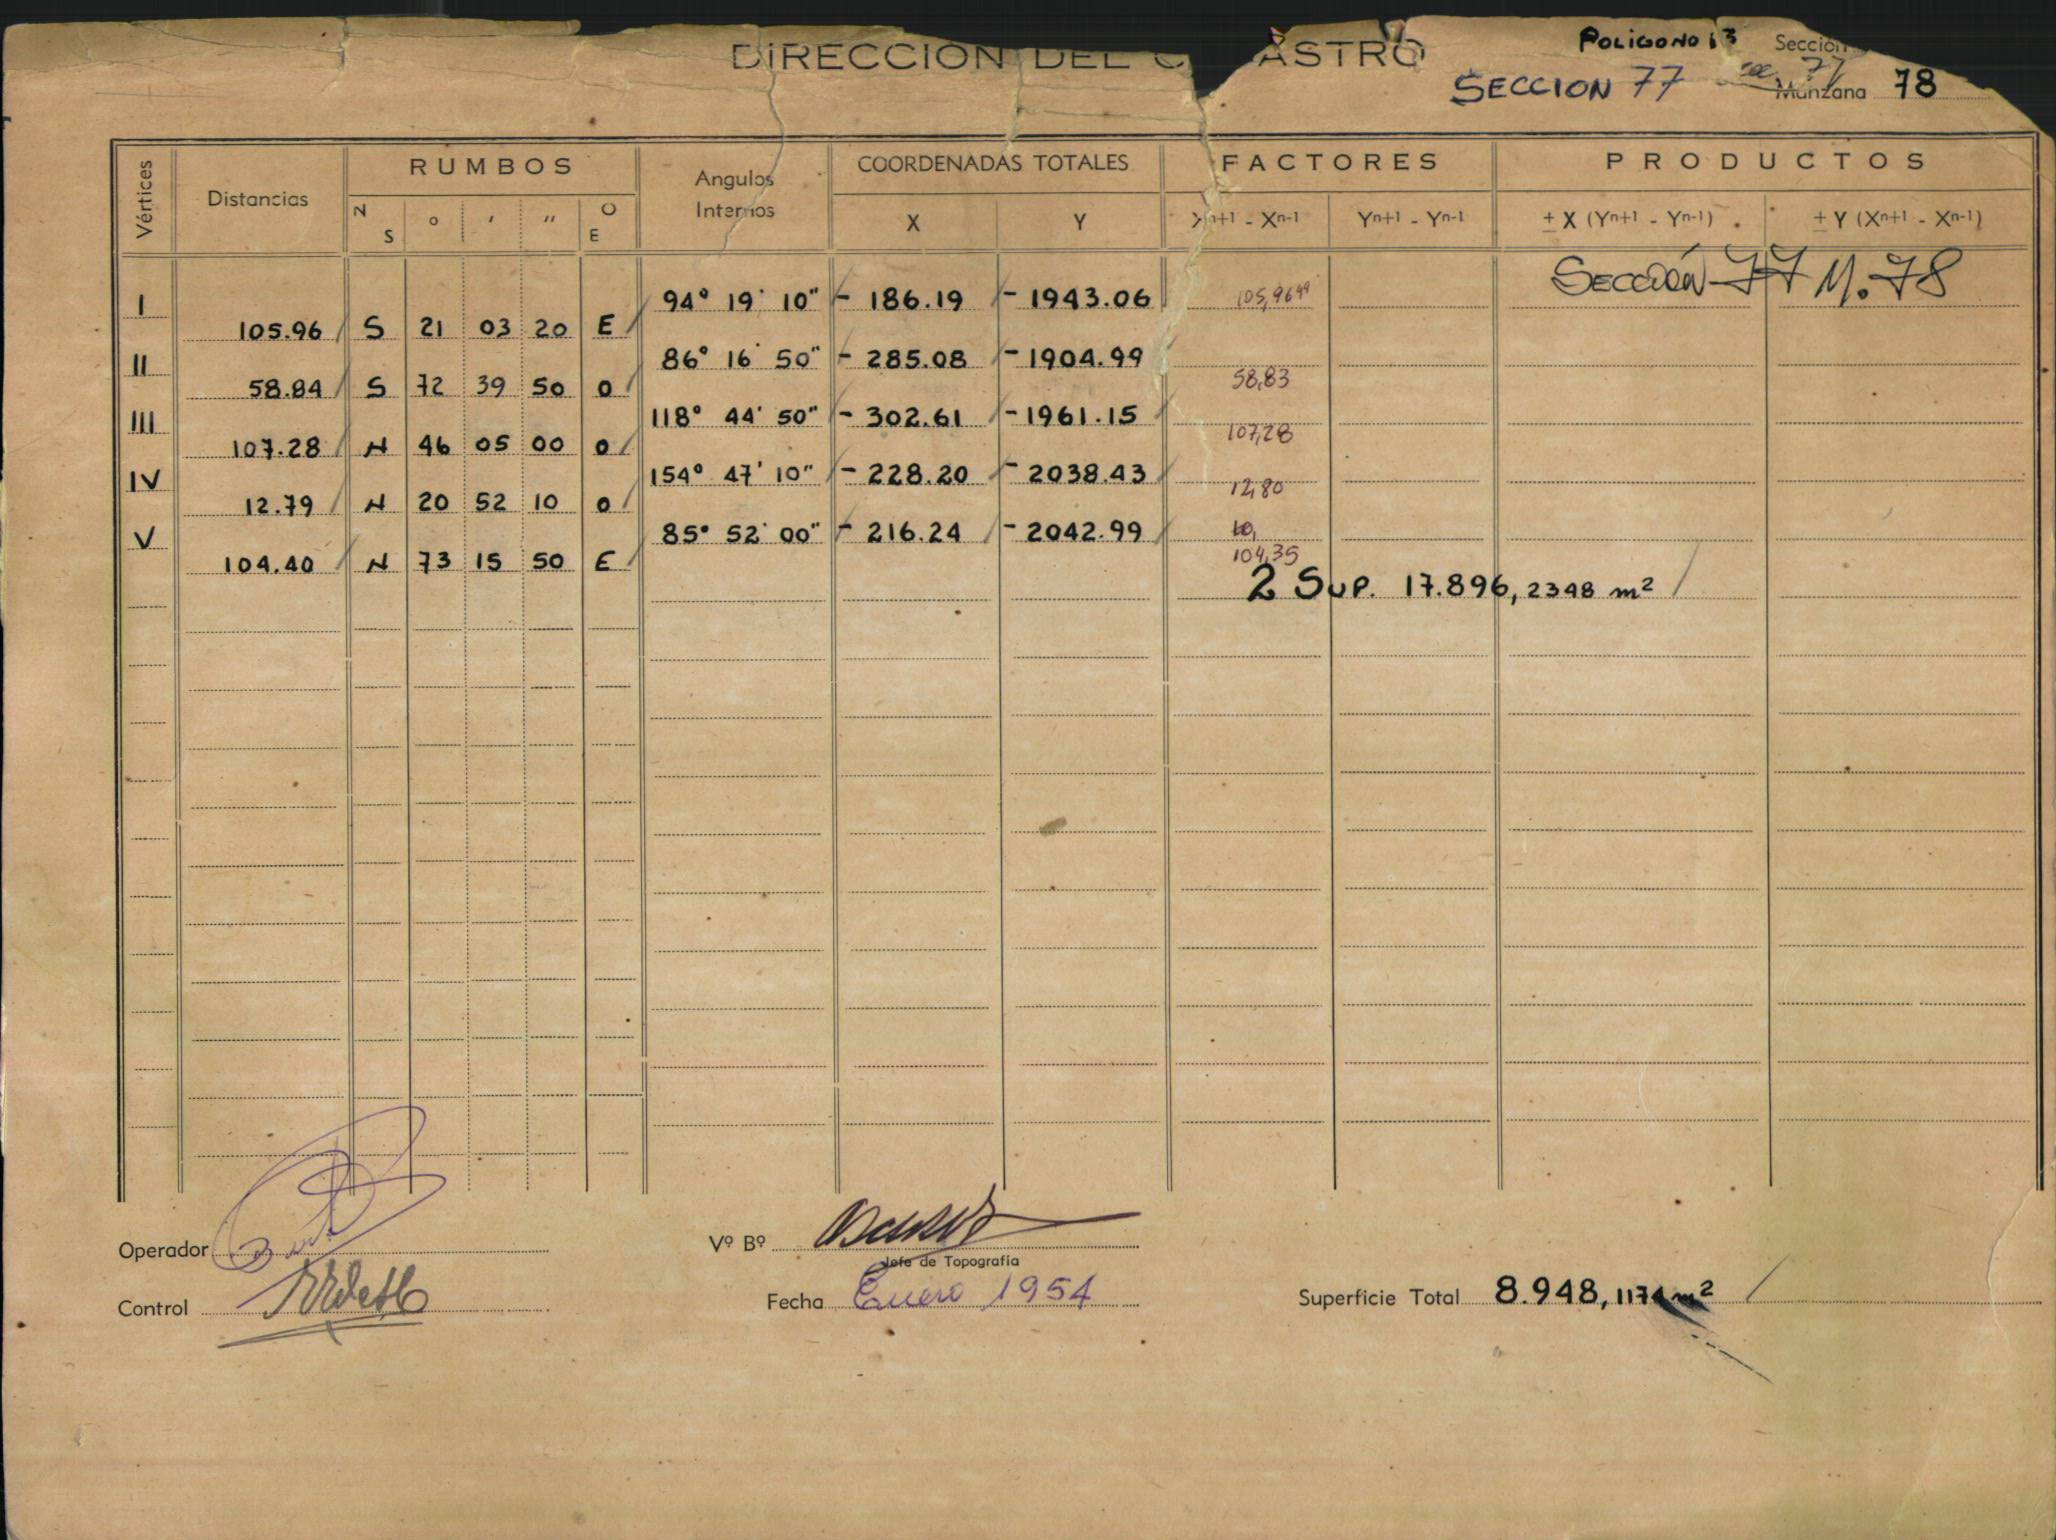 DIRECCION DEL C ASTRO
POLIGONO 13 Sección
SECCION 77 77 Manzana 78
Vértices Distancias RUMBOS Angulos Internos COORDENADAS TOTALES FACTORES PRODUCTOS
N S ° ′ ″ O E X Y Xn+1 - Xn-1 Yn+1 - Yn-1 ± X (Yn+1 - Yn-1) ± Y (Xn+1 - Xn-1)
SECCIÓN 77 M. 78
I 94° 19' 10" - 186.19 - 1943.06
105.96 S 21 03 20 E
II 86° 16' 50" - 285.08 - 1904.99
58.84 S 72 39 50 O 58,83
III 118° 44' 50" - 302.61 - 1961.15
107.28 N 46 05 00 O 107,28
IV 154° 47' 10" - 228.20 - 2038.43
12.79 N 20 52 10 O 12,80
V 85° 52' 00" - 216.24 - 2042.99 10,
104.40 N 73 15 50 E 104,35
2 SUP. 17.896,2348 m²
Operador Vº Bº
Jefe de Topografía
Control Fecha Enero 1954 Superficie Total 8.948,1174 m²